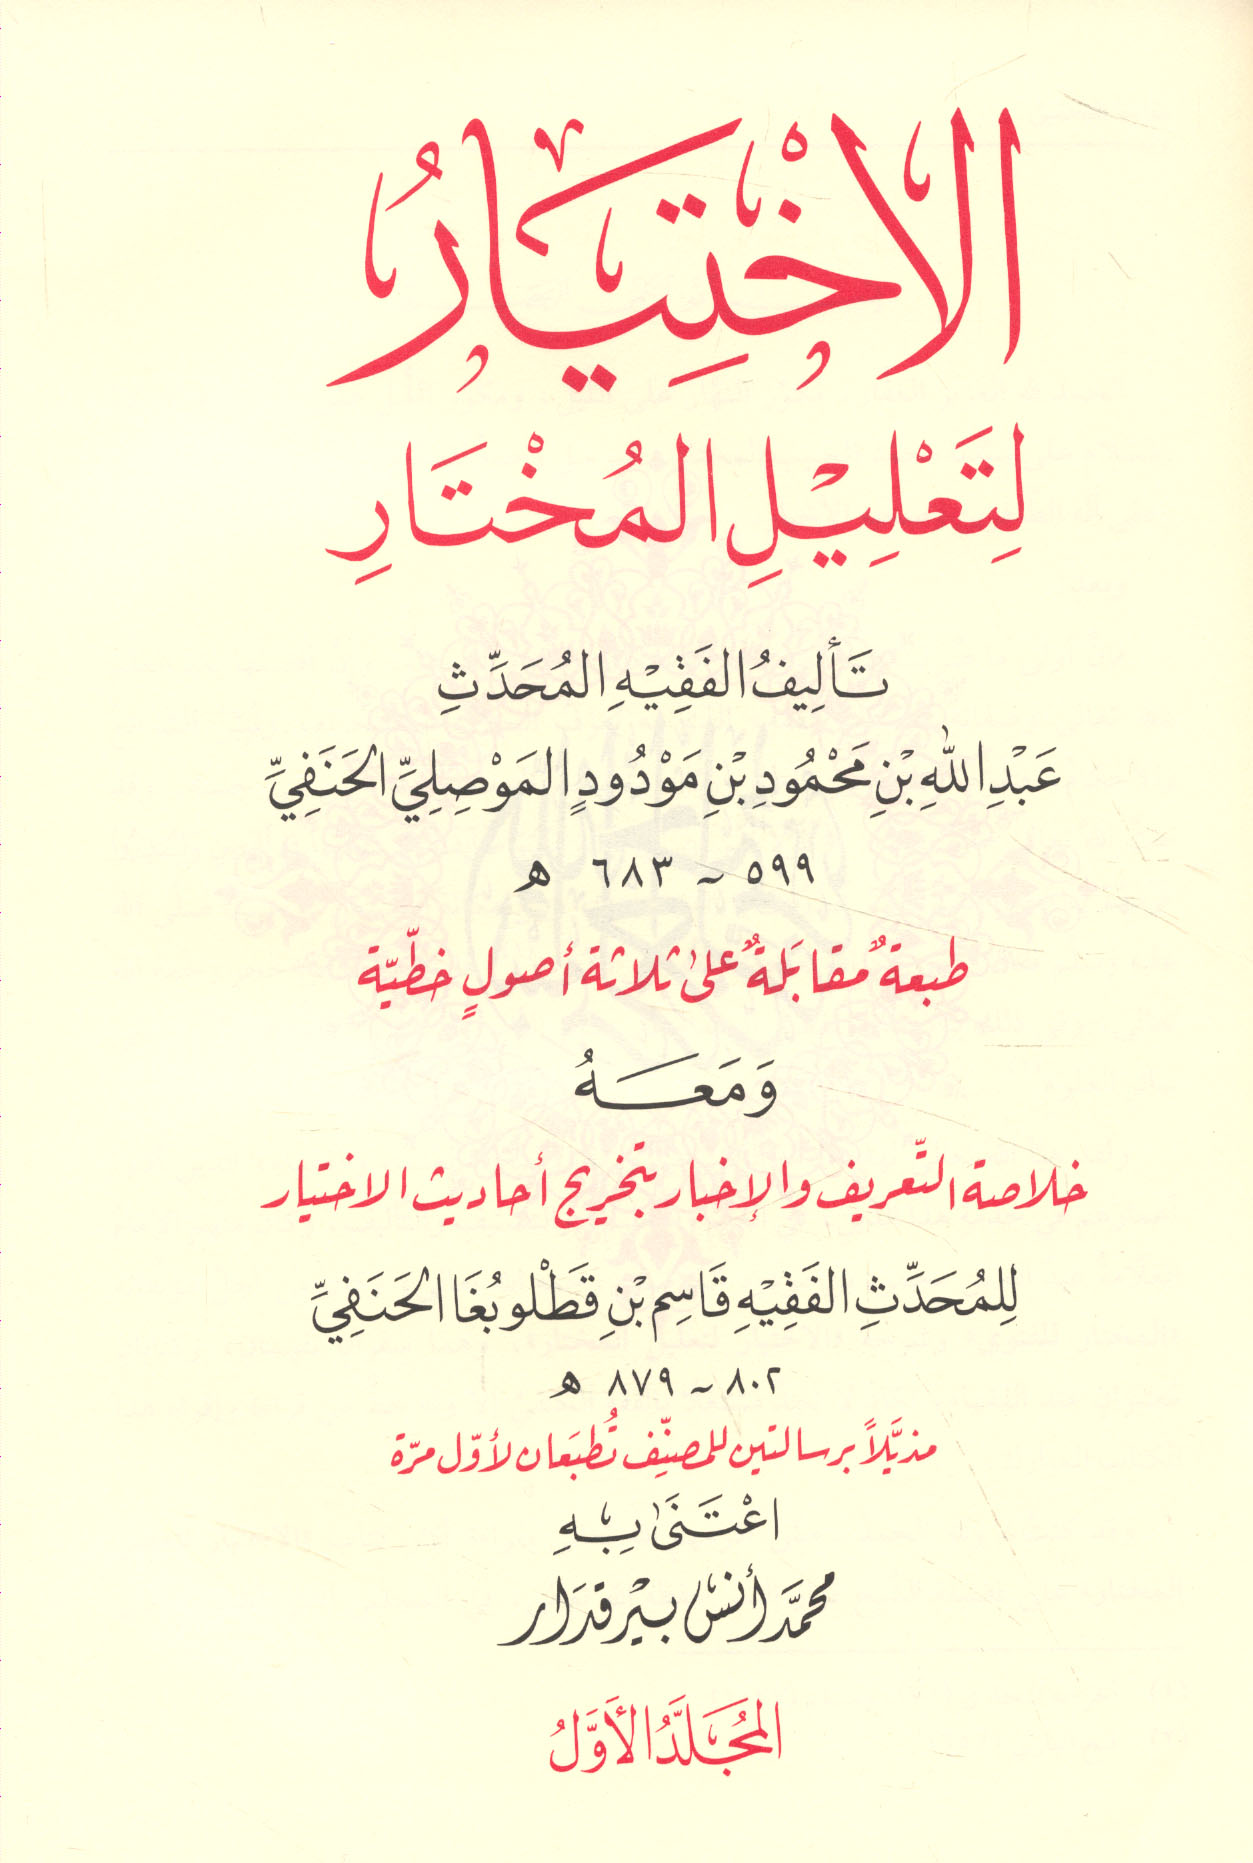 الاخْتِيَارُ
لِتَعْلِيْلِ المُخْتَارِ
تَأْلِيفُ الفَقِيْهِ المُحَدِّثِ
عَبْدِ اللهِ بْنِ مَحْمُودِ بْنِ مَوْدُودٍ المَوْصِلِيِّ الحَنَفِيِّ
٥٩٩ ~ ٦٨٣ هـ
طبعةٌ مقابَلةٌ على ثلاثة أصولٍ خطّيّة
وَمَعَهُ
خلاصة التّعريف والإخبار بتخريج أحاديث الاختيار
لِلمُحَدِّثِ الفَقِيْهِ قَاسِم بْنِ قَطْلُوبُغَا الحَنَفِيِّ
٨٠٢ ~ ٨٧٩ هـ
مذيَّلاً برسالتين للمصنِّف تُطبَعان لأوّل مرّة
اعْتَنَى بِهِ
محمَّد أنس بيْرقدَار
المُجَلَّدُ الأَوَّلُ